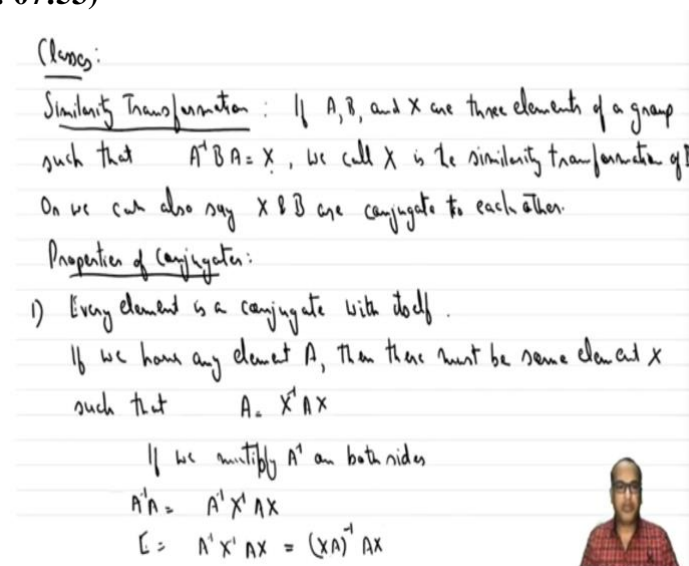 07:55)
Classes:
Similarity Transformation : If A, B, and X are three elements of a group
such that A⁻¹BA = X, we call X is the similarity transformation of B
Or we can also say X & B are conjugate to each other.
Properties of Conjugates:
1) Every element is a conjugate with itself.
If we have any element A, then there must be some element X
such that A = X⁻¹AX
If we multiply A⁻¹ on both sides
A⁻¹A = A⁻¹X⁻¹AX
E = A⁻¹X⁻¹AX = (XA)⁻¹AX